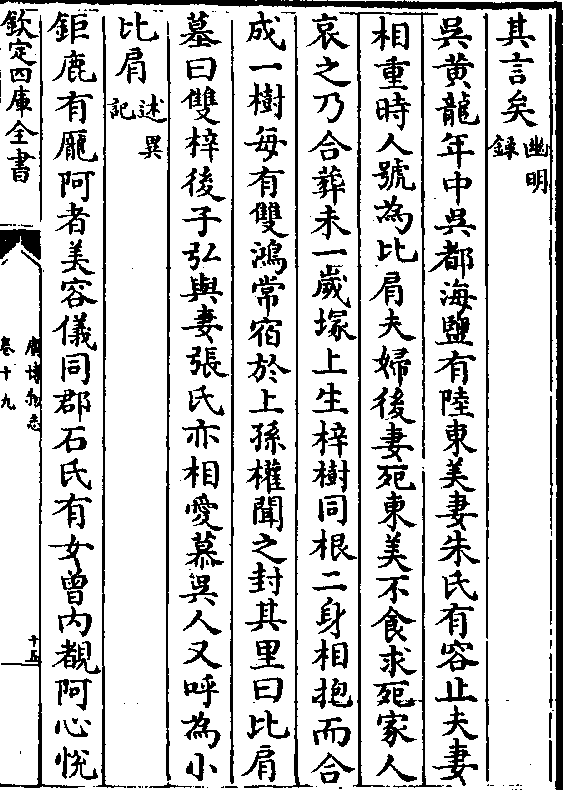 其言矣幽明錄
吳黄龍年中吳都海鹽有陸東美妻朱氏有容止夫妻
相重時人號為比肩夫婦後妻死東美不食求死家人
哀之乃合葬未一歲塜上生梓樹同根二身相抱而合
成一樹每有雙鴻常宿於上孫權聞之封其里曰比肩
墓曰雙梓後子弘與妻張氏亦相愛慕吳人又呼為小
比肩述異記
鉅鹿有龎阿者美容儀同郡石氏有女曾内覩阿心悦
欽定四庫全書
廣博物志
卷十九
十五